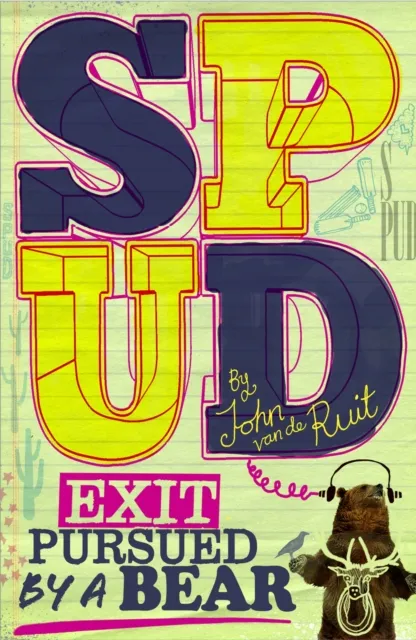 SPUD
By
John
van de Ruit
EXIT
PURSUED
BY A BEAR
S
PUD